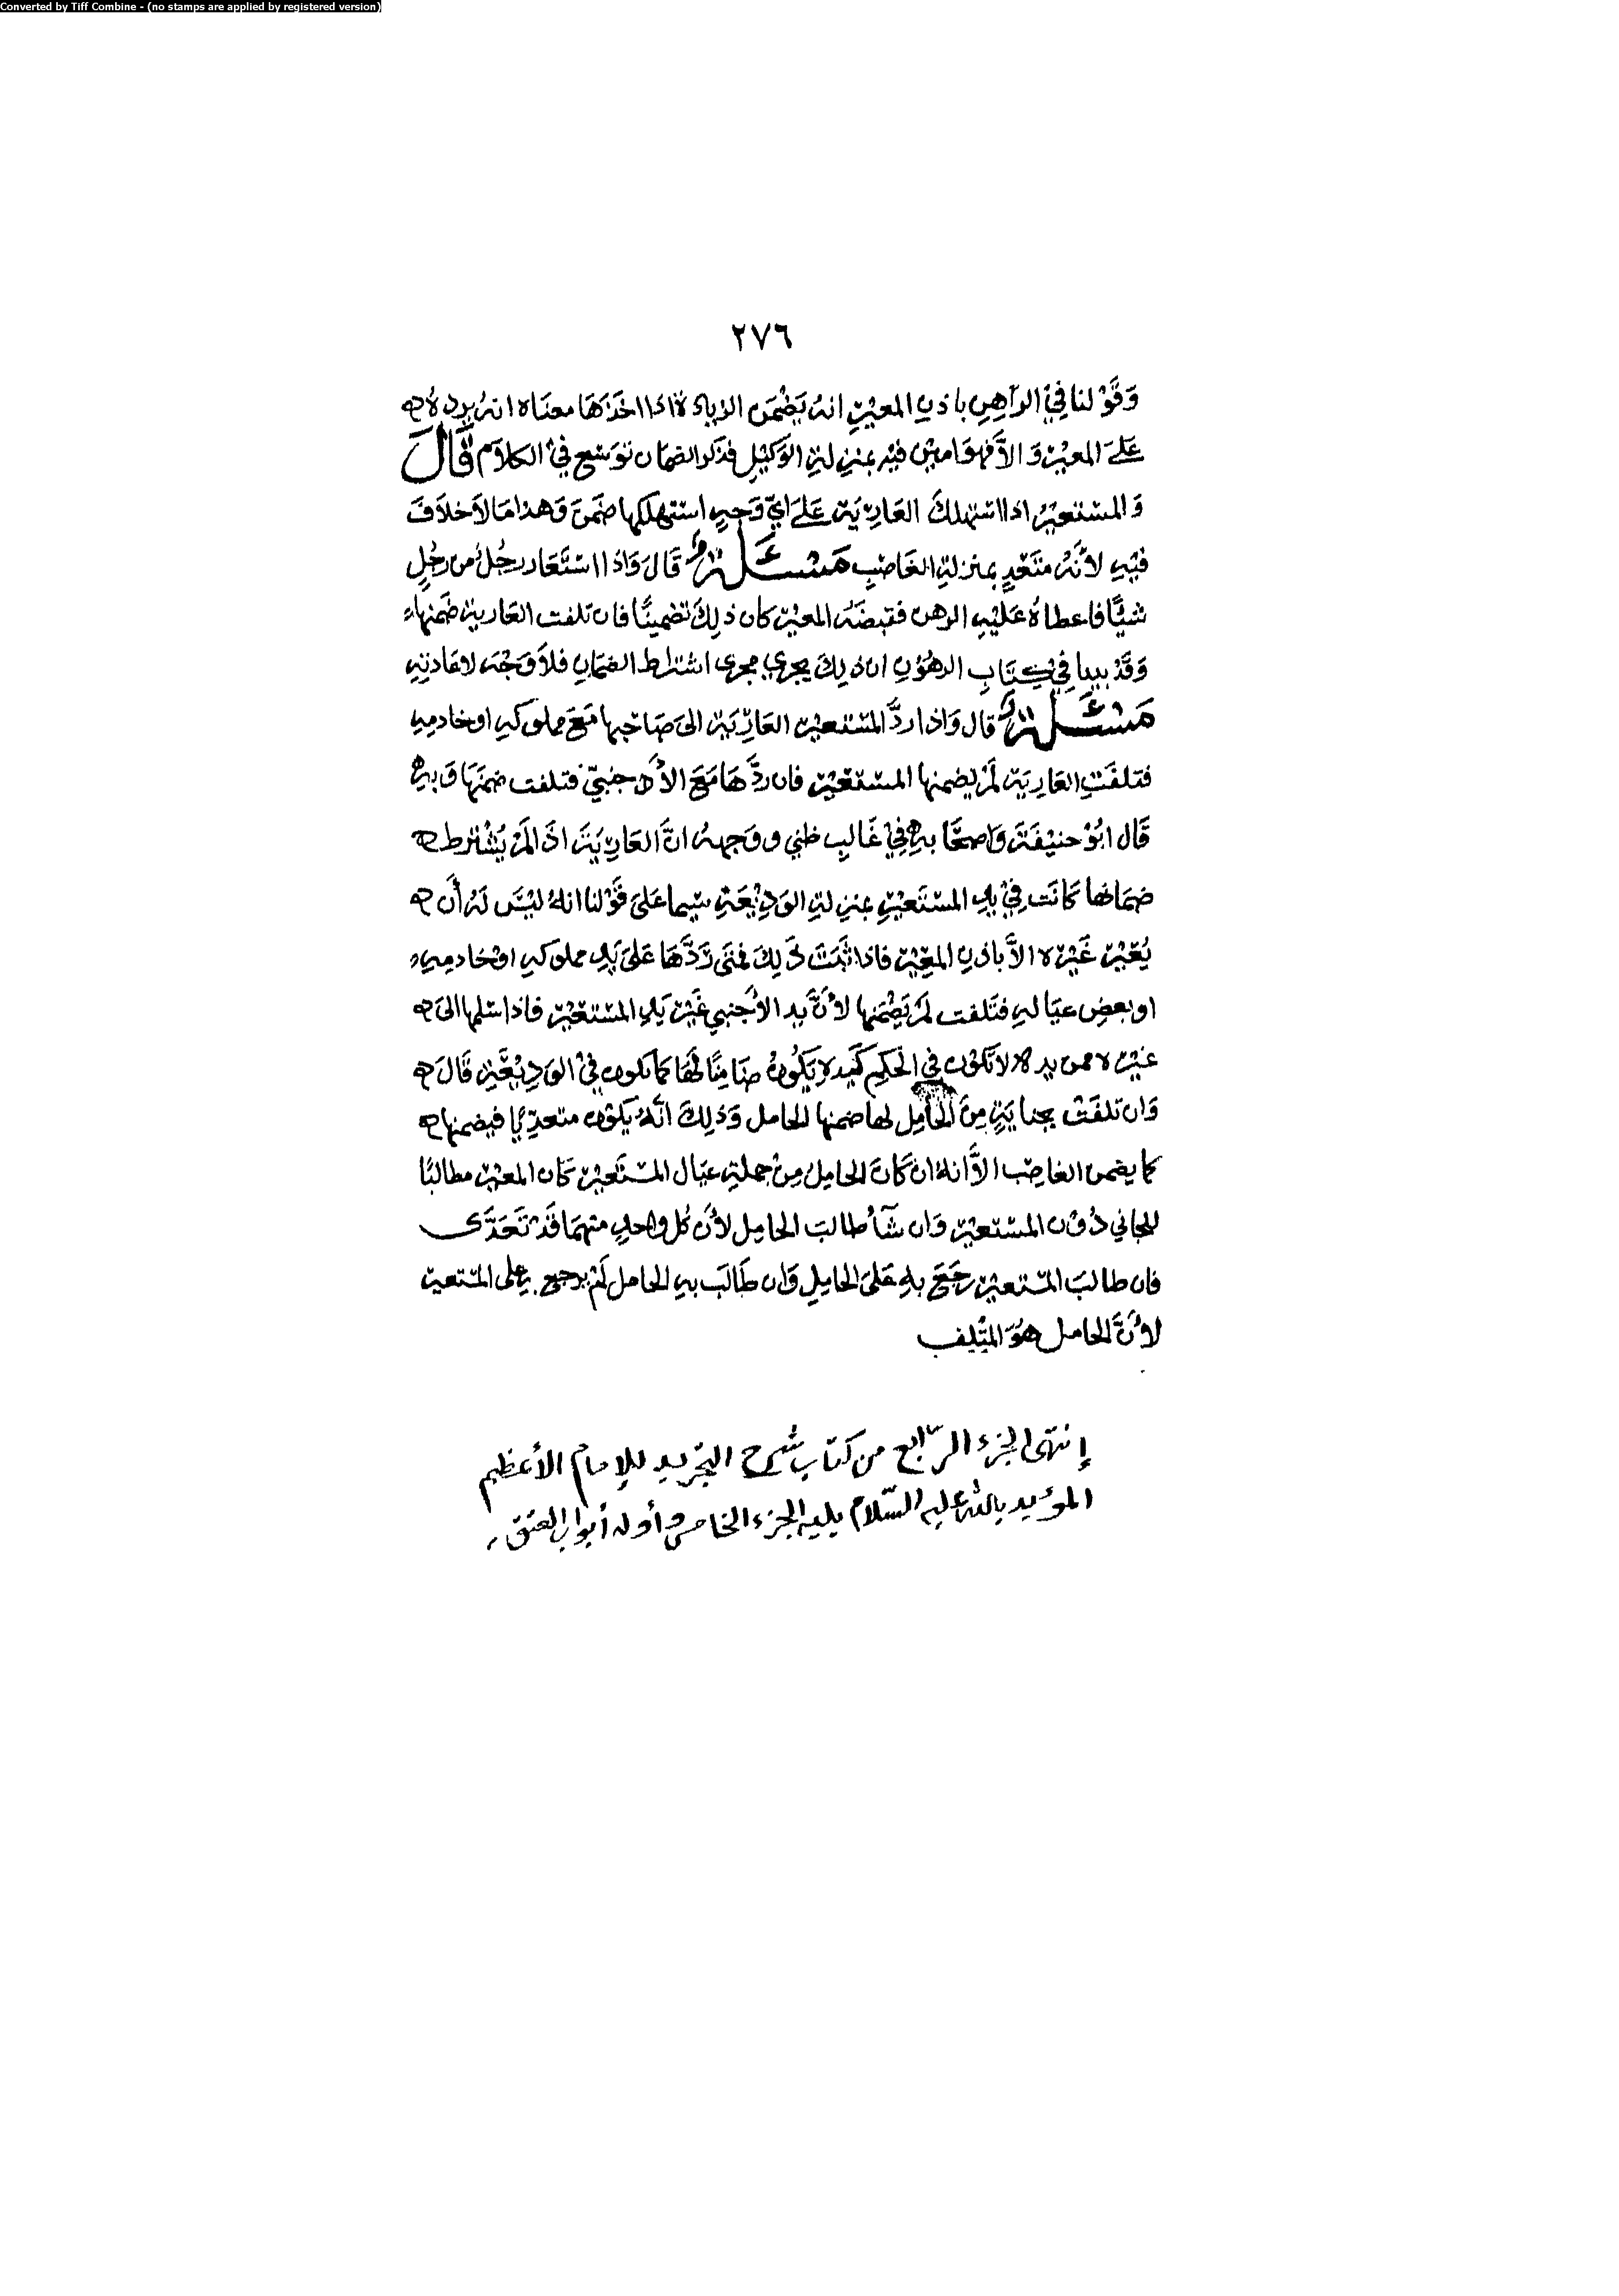 Converted by Tiff Combine - (no stamps are applied by registered version)
٢٧٦
وَقَوْلنا فِيْ الرآهِنِ باذنِ المعيْرِ انهُ يَضْمَن الزيادة اذا اخَذَهَا معنَاه انهُ يرده
عَلىَ المعيْر وَالاَّ فهوَ امين فيه بمنزلة الوَكيْلِ فذكر الضمان توسّع فيْ الكلاَم قَالَ
وَالمسْتعيْرُ اذا استهلكَ العَاريَة عَلىَ ايّ وَجهٍ استهلكها ضمَنَ وَهذا مَا لاَ خلاَفَ
فيْهِ لأنَّهُ متعَدٍ بمنزلةِ الغَاصبِ مَسْئَلة قَالَ وَاذا اسْتَعَار رجُلٌ من رجُلٍ
شيْئًا فاعطاهُ عَليْهِ الرهن فقبضَهُ المعيْر كان ذلِكَ تضمينًا فان تلفت العَاريَة ضمنها
وَقَدْ بينا فيْ كِتَابِ الرهوُنِ ان ذلِكَ يجري مجرى اشتراط الضمانِ فلاَ وَجْهَ لاعَادتِهِ
مَسْئَلة قال وَاذا ردَّ المسْتعيْر العَاريَة الىَ صَاحبها مَعَ مملوكهِ او خادمِهِ
فتلفَتِ العَاريَة لمْ يضمنها المسْتعيْر فان ردَّهَا مَعَ الأجنبيّ فتلفت ضمنَهَا وَبه
قَال ابُوْ حنيْفَة وَاصحَابه فِيْ غَالبِ ظني و وَجهه انَّ العَاريَةَ اذَا لَمْ يُشْترط
ضمَانها كَانَت فِيْ يدِ المسْتَعيْرِ بمنزلةِ الوَديْعَةِ سيما عَلىَ قَوْلنا انهُ ليْسَ لهُ أن
يُعيْر غَيْره الاَّ باذنِ المعيْر فاذا ثبَتَ ذَلِكَ فمتى رَدَّهَا عَلىَ يَدِ مملوكهِ اوْ خادمِهِ
او بعضِ عيَالهِ فتَلفت لَمْ يَضْمَنها لأنَّ يد الأجنبي غَيْر يَدِ المسْتعيْر فاذا سَلمها الىَ
غيْره ممن يده لاَ تَكوْن فيْ الحكمِ كَيَده يَكُونُ ضَامِنًا لَهَا كمَا تكون فيْ الوَديْعَةِ قَالَ
وَان تلفَتْ بجنايَةٍ مِنَ الحَامِل لها ضمنها الحامل وَذلِكَ انَّهُ يكوْن متعدِّيًا فيضمنها
كما يضمن الغاصِب الاَّ انهُ ان كَانَ الحامِلُ مِنْ جملةِ عيَال المسْتَعيْر كَان المعيْر مطالبًا
للجاني دُوْن المسْتعيْر وَان شَآءَ طالبَ الحامِل لأنَّ كُل وَاحدٍ منهمَا قَدْ تَعَدَّى
فان طالبَ المسْتعيْر رجَعَ بهِ عَلىَ الحامِلِ وَان طَالَبَ بهِ الحامل لَمْ يرجع به على المسْتعيْر
لأنَّ الحامل هُوَ المتْلِف
إنتهى الجزء الرّابع من كتاب شرح التجريد للإمام الأعظم
المؤيد بالله عليه السّلام يليه الجزء الخامس وأوله أبواب العتق